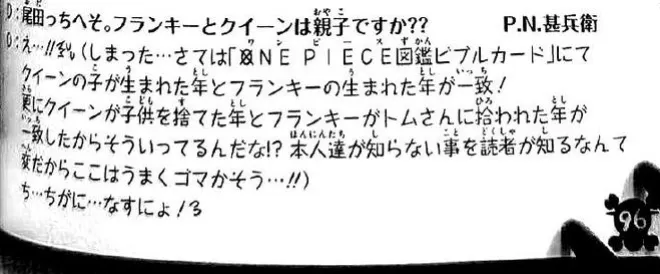 D：尾田っちへそ。フランキーとクイーンは親子ですか？？ P.N.甚兵衛
O：え…!!ギク。(しまった…さては「ONE PIECE図鑑ビブルカード」にて
クイーンの子が生まれた年とフランキーの生まれた年が一致！
更にクイーンが子供を捨てた年とフランキーがトムさんに拾われた年が
一致したからそういってるんだな!? 本人達が知らない事を読者が知るなんて
変だからここはうまくゴマかそう…!!)
ち…ちがに…なすにょ！3
96